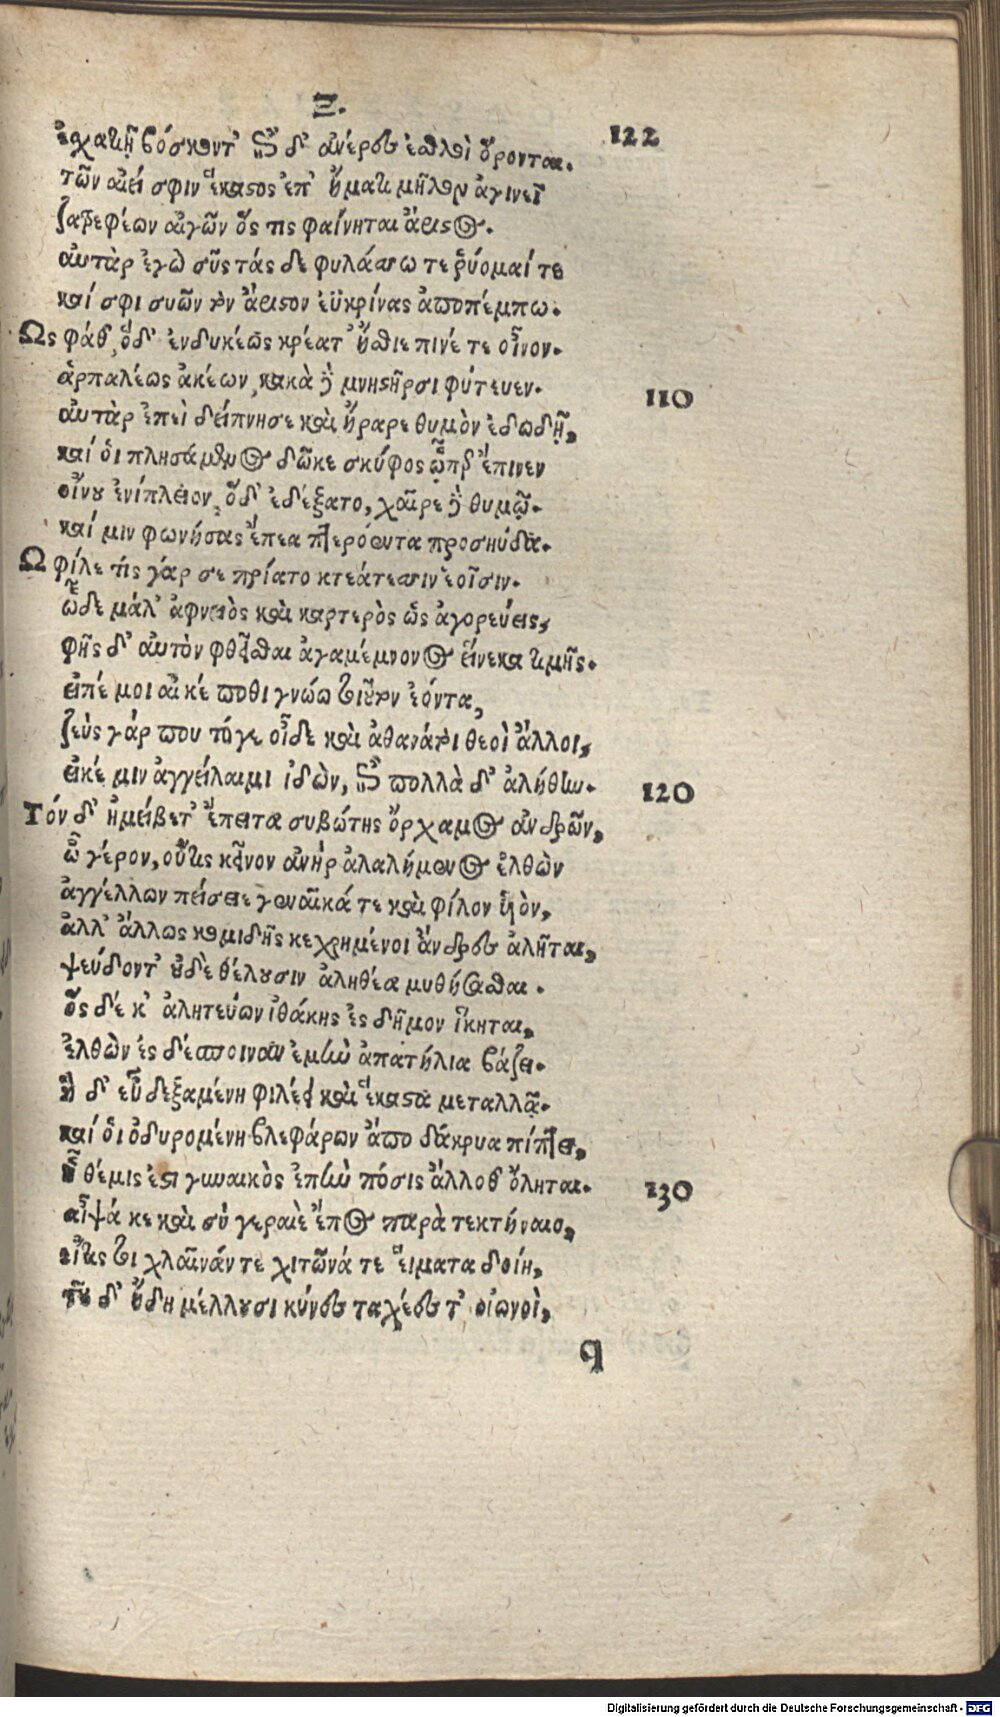 Ξ.
122
ἐσχατιῇ βόσκοντ' ἐπὶ δ' ἀνέρες ἐσθλοὶ ὄρονται.
τῶν αἰεί σφιν ἕκαστος ἐπ' ἤματι μῆλον ἀγινεῖ
ζατρεφέων αἰγῶν ὅς τις φαίνηται ἄριστος.
αὐτὰρ ἐγὼ σῦς τάς δε φυλάσσω τε ῥύομαί τε
καί σφι συῶν τὸν ἄριστον ἐϋκρίνας ἀποπέμπω.
Ὣς φάθ', ὅδ' ἐνδυκέως κρέατ' ἤσθιε πινέ τε οἶνον.
ἁρπαλέως ἀκέων, κακὰ δὲ μνηστῆρσι φύτευεν. 110
αὐτὰρ ἐπεὶ δείπνησε καὶ ἤραρε θυμὸν ἐδωδῇ,
καί ὁἱ πλησάμενος δῶκε σκύφος ᾧπερ ἔπινεν
οἴνου ἐνίπλειον, ὅδ' ἐδέξατο, χαῖρε δὲ θυμῷ.
καί μιν φωνήσας ἔπεα πτερόεντα προσηύδα.
Ω φίλε τίς γάρ σε πρίατο κτεάτεσσιν ἑοῖσιν.
ὧδε μάλ' ἀφνειὸς καὶ καρτερὸς ὡς ἀγορεύεις,
φῂς δ' αὐτὸν φθεῖσθαι ἀγαμέμνονος εἵνεκα τιμῆς.
εἰπέ μοι αἴ κέ ποθι γνώω τοιοῦτον ἐόντα,
ζεὺς γάρ που τόγε οἶδε καὶ ἀθανάτοι θεοὶ ἄλλοι,
εἴκέ μιν ἀγγείλαιμι ἰδὼν, ἐπὶ πολλὰ δ' ἀλήθην. 120
Τόν δ' ἠμείβετ' ἔπειτα συβώτης ὄρχαμος ἀνδρῶν,
ὦ γέρον, οὔτις κεῖνον ἀνὴρ ἀλαλήμενος ἐλθὼν
ἀγγέλλων πείσειε γυναῖκά τε καὶ φίλον υἱὸν,
ἀλλ' ἄλλως κομιδῆς κεχρημένοι ἄνδρες ἀλῆται,
ψεύδοντ' οὐδὲ θέλουσιν ἀληθέα μυθήσασθαι.
ὅς δέ κ' ἀλητεύων ἰθάκης ἐς δῆμον ἵκηται,
ἐλθὼν ἐς δέσποιναν ἐμὴν ἀπατήλια βάζει.
ἡ δ' εὖ δεξαμένη φιλέει καὶ ἕκαστα μεταλλᾷ.
καί ὁἱ ὀδυρομένη βλεφάρων ἄπο δάκρυα πίπτει,
ἣ θέμις ἐστὶ γυναικὸς ἐπὴν πόσις ἄλλοθ' ὄληται. 130
αἶψά κε καὶ σύ γεραιὲ ἔπος παρὰ τεκτήναιο,
εἴτις τοι χλαῖνάν τε χιτῶνά τε εἵματα δοίη,
τοῦ δ' ἤδη μέλλουσι κύνες ταχέες τ' οἰωνοὶ,
q
Digitalisierung gefördert durch die Deutsche Forschungsgemeinschaft - DFG